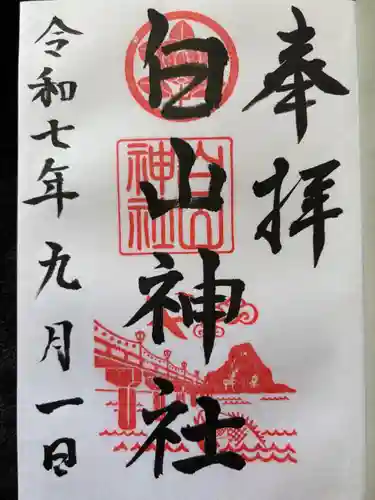 奉拝
白山神社
令和七年九月一日
白山
神社